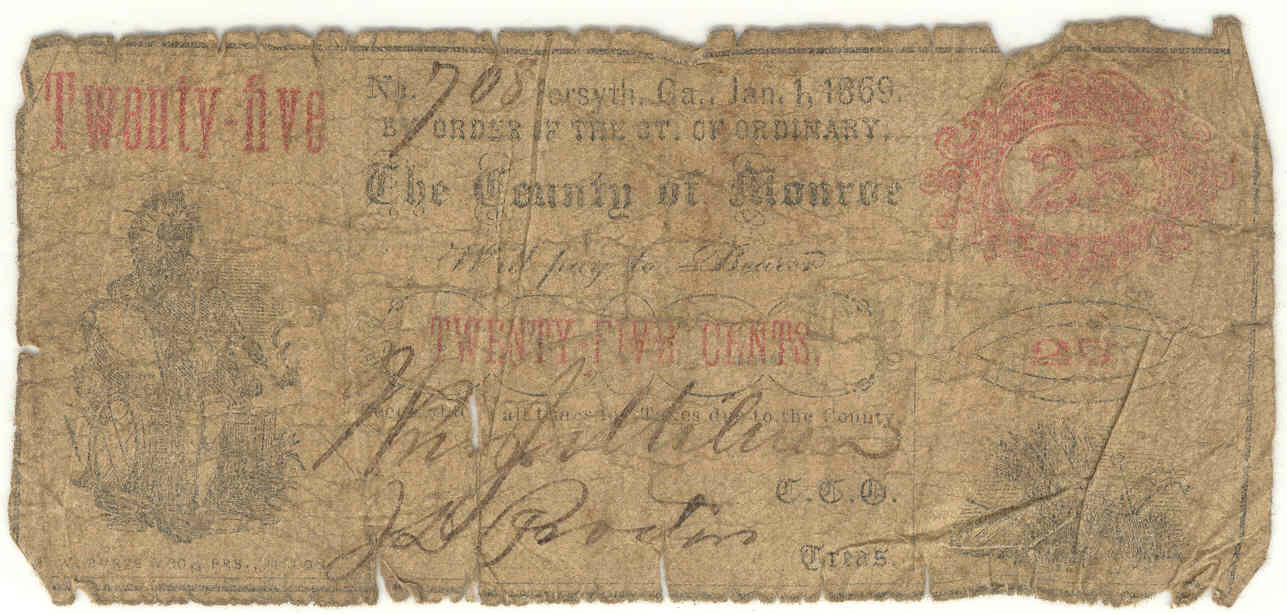 Twenty-five
No. 708 Forsyth, Ga., Jan. 1, 1869.
25
BY ORDER OF THE CT. OF ORDINARY.
The County of Monroe
Will pay to Bearer
TWENTY-FIVE CENTS.
25
Receivable all times for Taxes due to the County
Wm
C. C. O.
J
Treas.
BURKE & CO., PRS.,